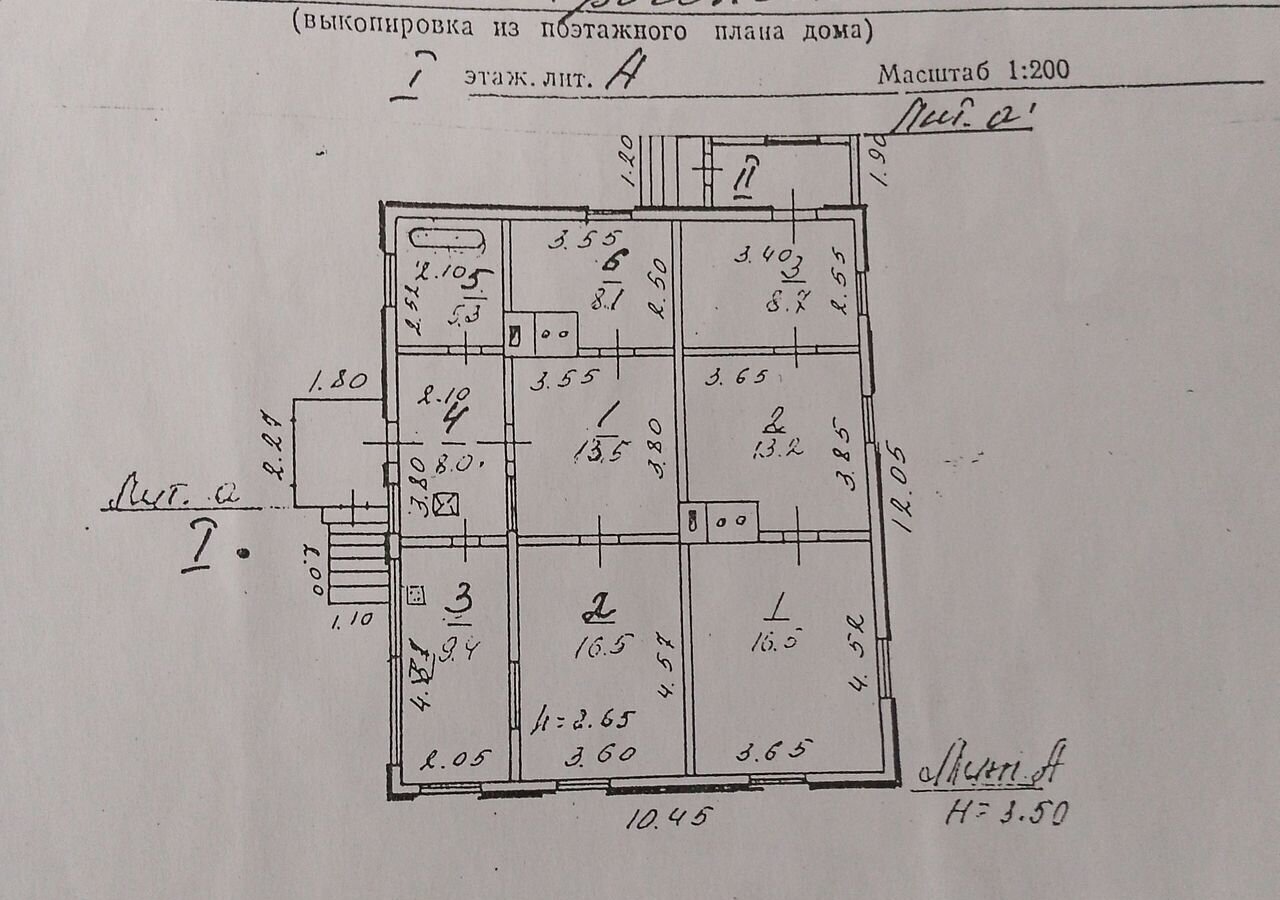 (выкопировка из поэтажного плана дома)
I этаж. лит. А Масштаб 1:200
Лит. а'
1.20 II 1.90
3.55 3.40
2.10 5 5.3 2.52
6 8.1 2.50
3 8.7 2.55
1.80 2.10 3.55 3.65
2.27 4 8.0. 3.80
1 13.5 3.80
2 13.2 3.85
12.05
Лит. а
I
2.00
1.10
3 9.4
2 16.5 4.57
1 16.5 4.52
h=2.65
2.05 3.60 3.65
10.45
А
Н=3.50